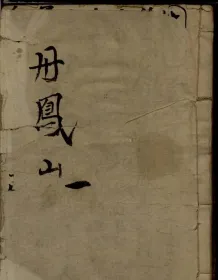 丹鳳山一